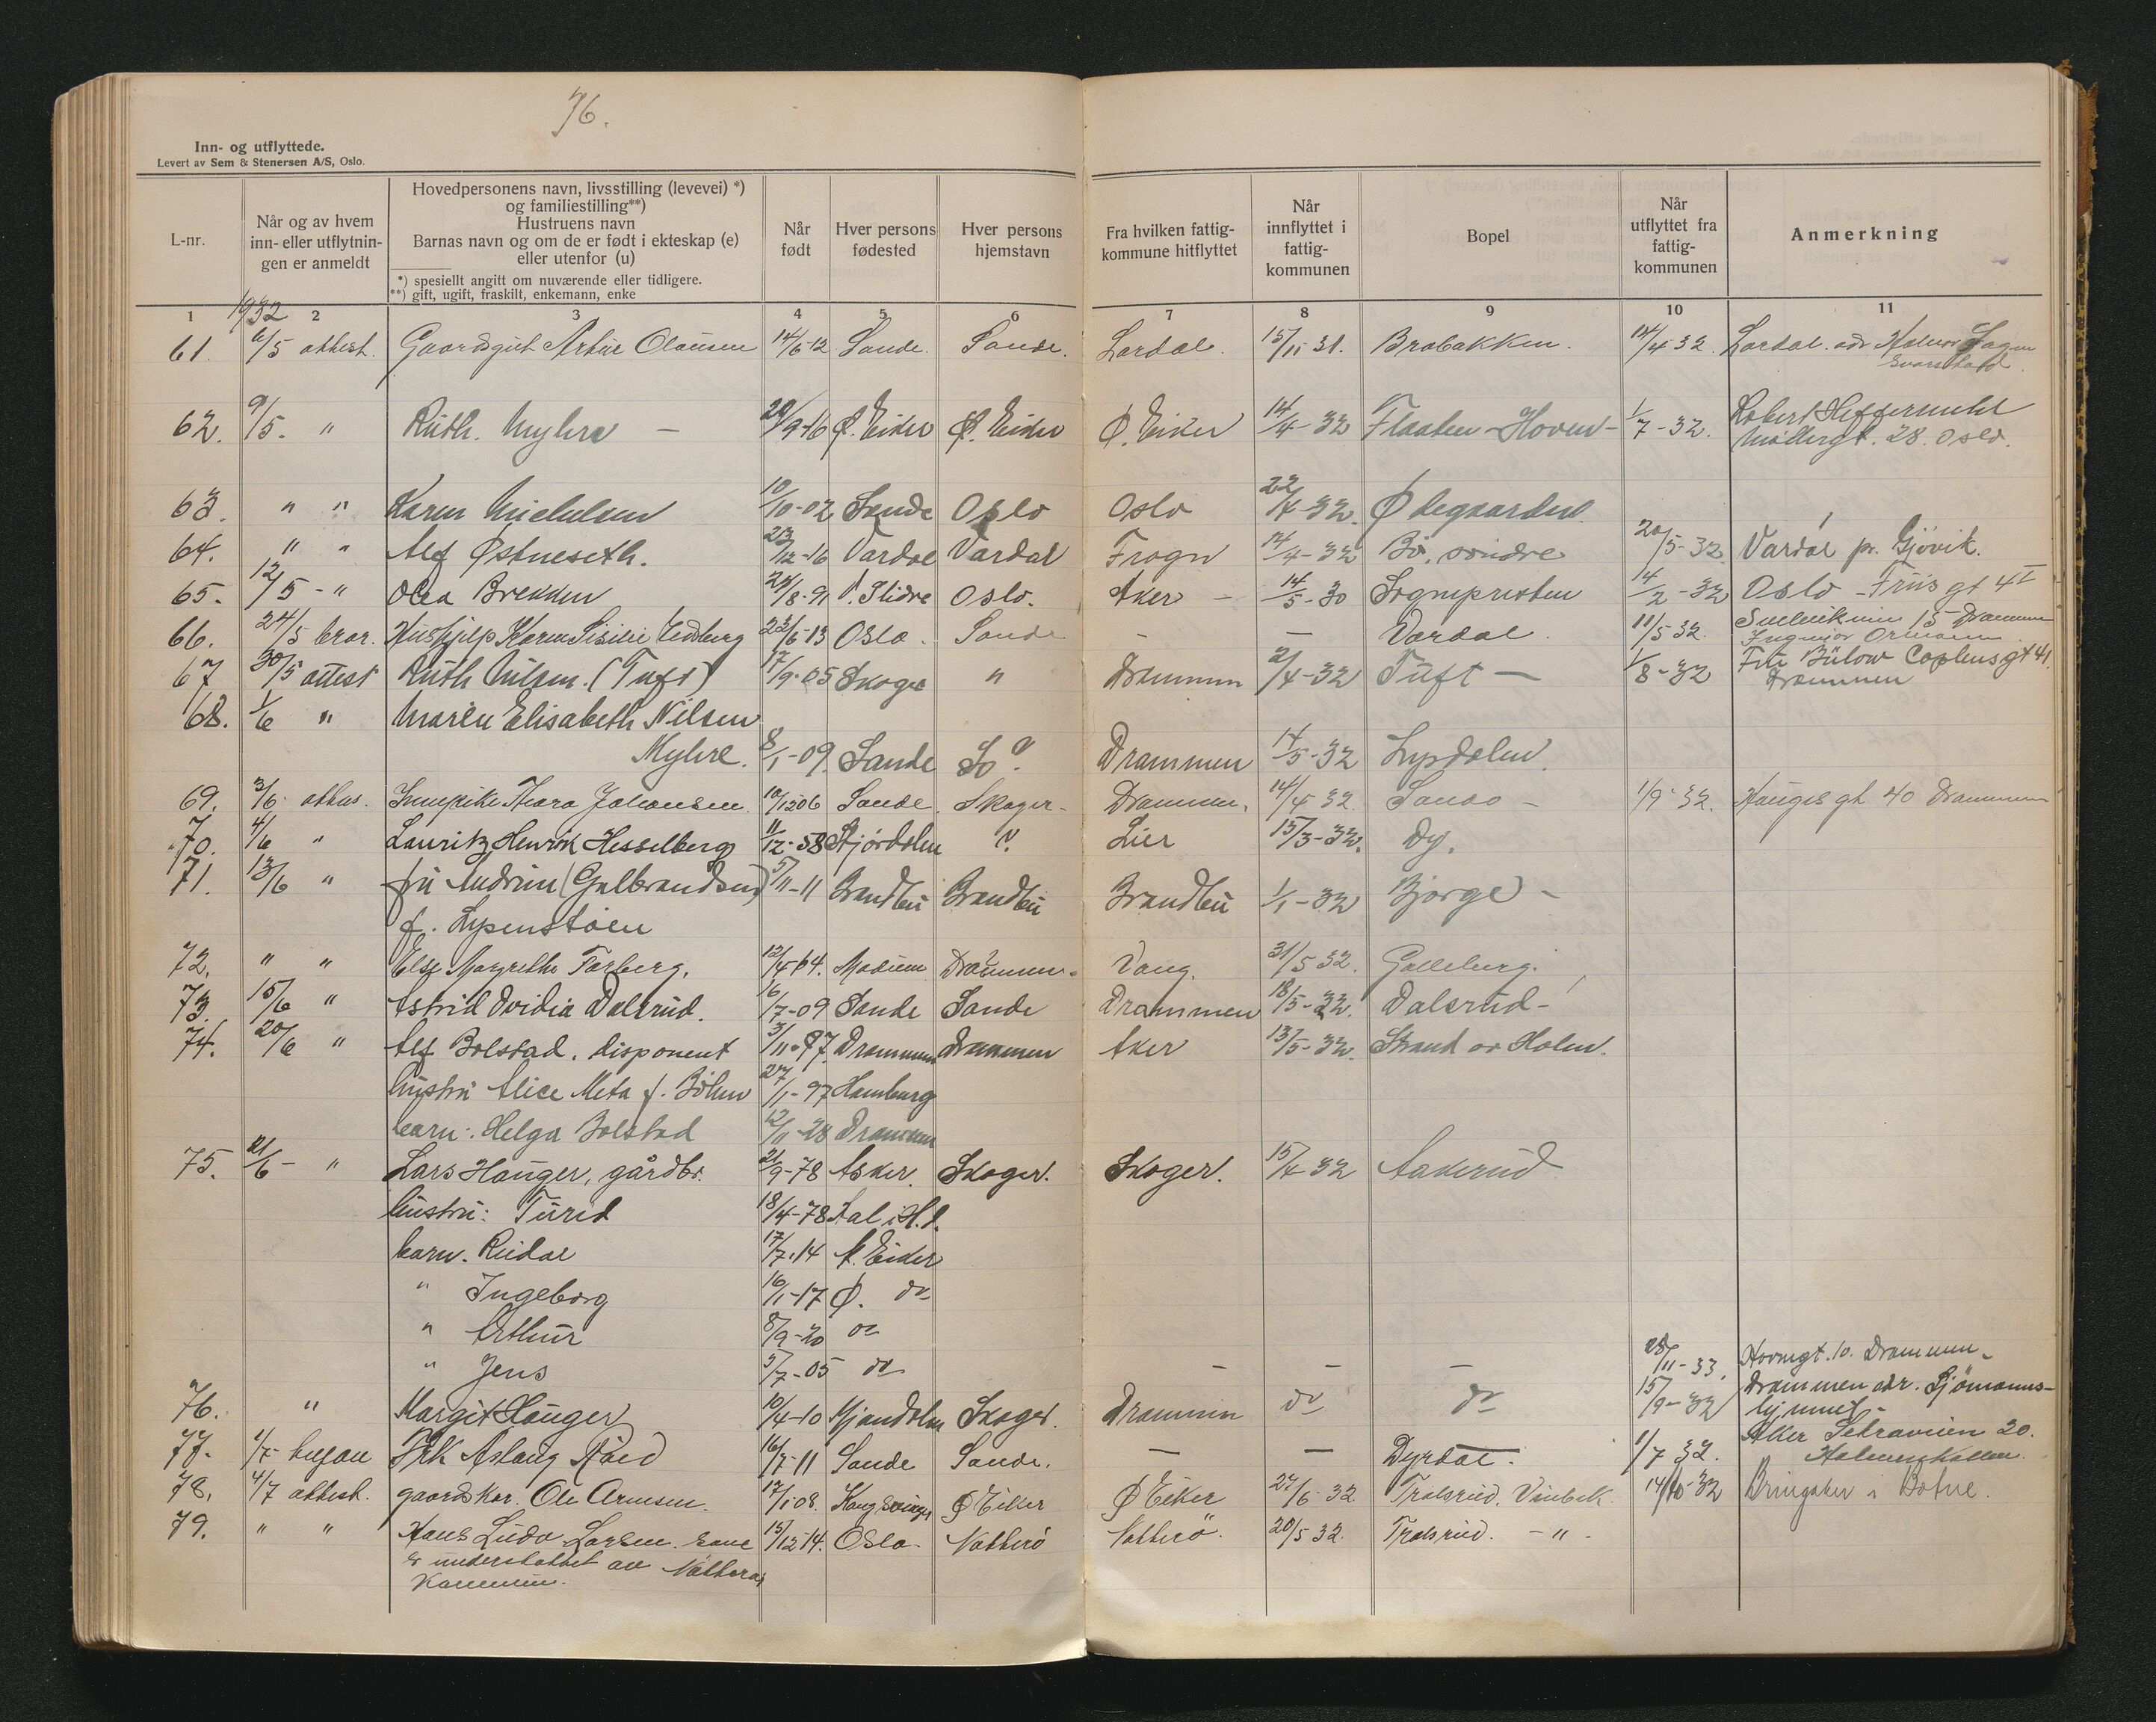 76.
Inn- og utflyttede.
Levert av Sem & Stenersen A/S, Oslo.
L-nr.
Når og av hvem
inn- eller utflytnin-
gen er anmeldt
Hovedpersonens navn, livsstilling (levevei) *)
og familiestilling**)
Hustruens navn
Barnas navn og om de er født i ekteskap (e)
eller utenfor (u)
*) spesiellt angitt om nuværende eller tidligere.
**) gift, ugift, fraskilt, enkemann, enke
Når
født
Hver persons
fødested
Hver persons
hjemstavn
Fra hvilken fattig-
kommune hitflyttet
Når
innflyttet i
fattig-
kommunen
Bopel
Når
utflyttet fra
fattig-
kommunen
Anmerkning
1 2 3 4 5 6 7 8 9 10 11
1932
61. 6/5 attest. Gaardsgut Artur Olausen 14/6-12 Sande. Sande. Lardal. 15/11 31. Brabakken. 14/4 32. Lardal. adr Halvor
62. 9/5. " Ruth. Myhre — 20/9-16 Ø. Eiker Ø. Eiker Ø. Eiker 14/4-32 Flaaten-Hoven- 1/7-32. Robert
Møllergt. 28. Oslo.
63. " " Karen Michelsen 10/10-02 Sande Oslo Oslo 22/4-32. Ødegaarden.
64. " " Alf Østneseth. 23/12-16 Vardal Vardal Frogn 14/4-32 Bø, søndre 20/5-32 Vardal pr. Gjövik.
65. 12/5 - " Olea Brekken 24/8-91 V. Slidre Oslo. Aker - 14/5-30 Sognepresten 14/2-32 Oslo - Friis gt 4 I
66. 24/5 Hushjelp Karen Sisilie Eidsberg 23/6-13 Oslo. Sande — — Vardal. 11/5 32. 15 Drammen
67 30/5 attest Ruth Nilsen. (Tuft) 17/9-05 Skoger " Drammen 2/4-32 Tuft — 1/8-32 Fru Bülow Coplensgt 41.
Drammen
68. 1/6 " Maren Elisabeth Nilsen
Myhre. 8/1-09. Sande Do. Drammen 14/5-32
69. 3/6. Thora Johansen Sande. Skoger- Drammen. 14/4 32. Sando - 1/9-32. Hauges gt 40 Drammen
70. 4/6 " Lauritz Henrik Hesselberg 11/12-58 Stjördalen ". Lier 15/3-32. By.
71. 13/6 " fru Andrine (Gulbrandsen) 5/11-11 Brandbu Brandbu Brandbu 1/1-32 Bjørge -
72. " " Else Margrethe Torberg. 12/4 64. Modum Drammen. Vang. 31/5 32. Galleberg.
73. 15/6 " Astrid Ovidia Dalsrud. 16/7-09 Sande Sande Drammen 18/5-32. Dalsrud -
74. 20/6 " Alf Bolstad, disponent 3/11-97. Drammen Drammen Aker 13/5-32. Strand av Holm.
hustru Alice Meta f. Böhm 27/1-97 Hamburg
barn: Helga Bolstad 12/11-28 Drammen
75. 21/6 - " Lars Hauger, gårdbr. 21/9-78 Asker. Skoger. Skoger. 15/4 32 Aakerud
hustru: Turid 18/4-78 Aal i H.d.
barn. Reidar 17/7-14 N. Eiker
" Ingeborg 16/1-17 Ø. do
" Arthur 8/9-20 do
" Jens 5/7-05 do — — — 28/11-33. Drammen.
76. " Margit Hauger 10/4-10 Mjøndalen Skoger. Drammen do do 15/9-32 Drammen adr. Sjömanns-
hjemmet.
77. 1/7- Frk Aslaug Røed 16/7-11 Sande Sande. — — Dyrdal. 1/7 32. Aker 20.
Holmenkollen.
78. 4/7 attest. gaardskar. Ole Arnesen. 17/1-08. Kongsvinger Ø Eiker Ø Eiker 27/6-32 Tralsrud. 14/10-32 i Botne.
79. " " Hans Ludv. Larsen. som 15/12 14. Oslo. Nøtterö Nøtterö. 20/5 32. Tralsrud. - " -
er understøttet av Nøtterøs
kommune.